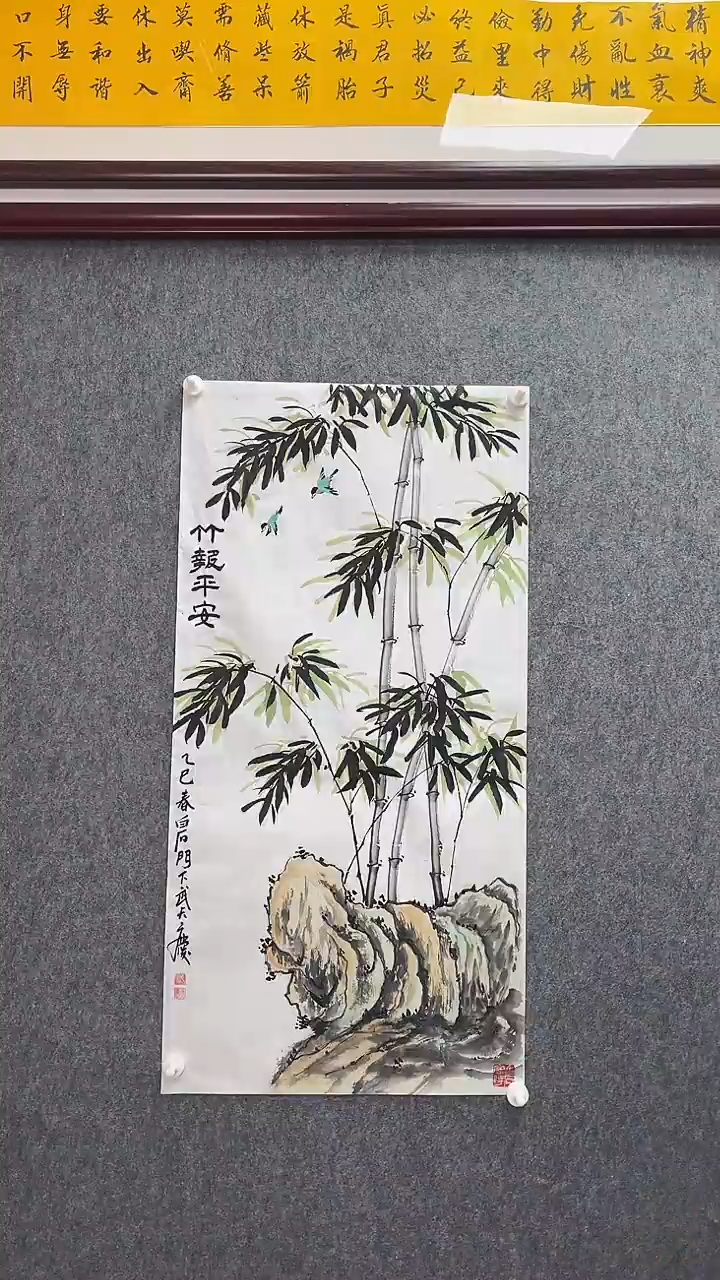 精神爽
氣血衰
不亂性
免傷財
勤中得
儉里來
終益己
必招災
真君子
是禍胎
休放箭
藏些呆
需脩善
莫喫齋
休出入
要和諧
身無辱
口不開
竹報平安
乙巳春白石門下武大慶